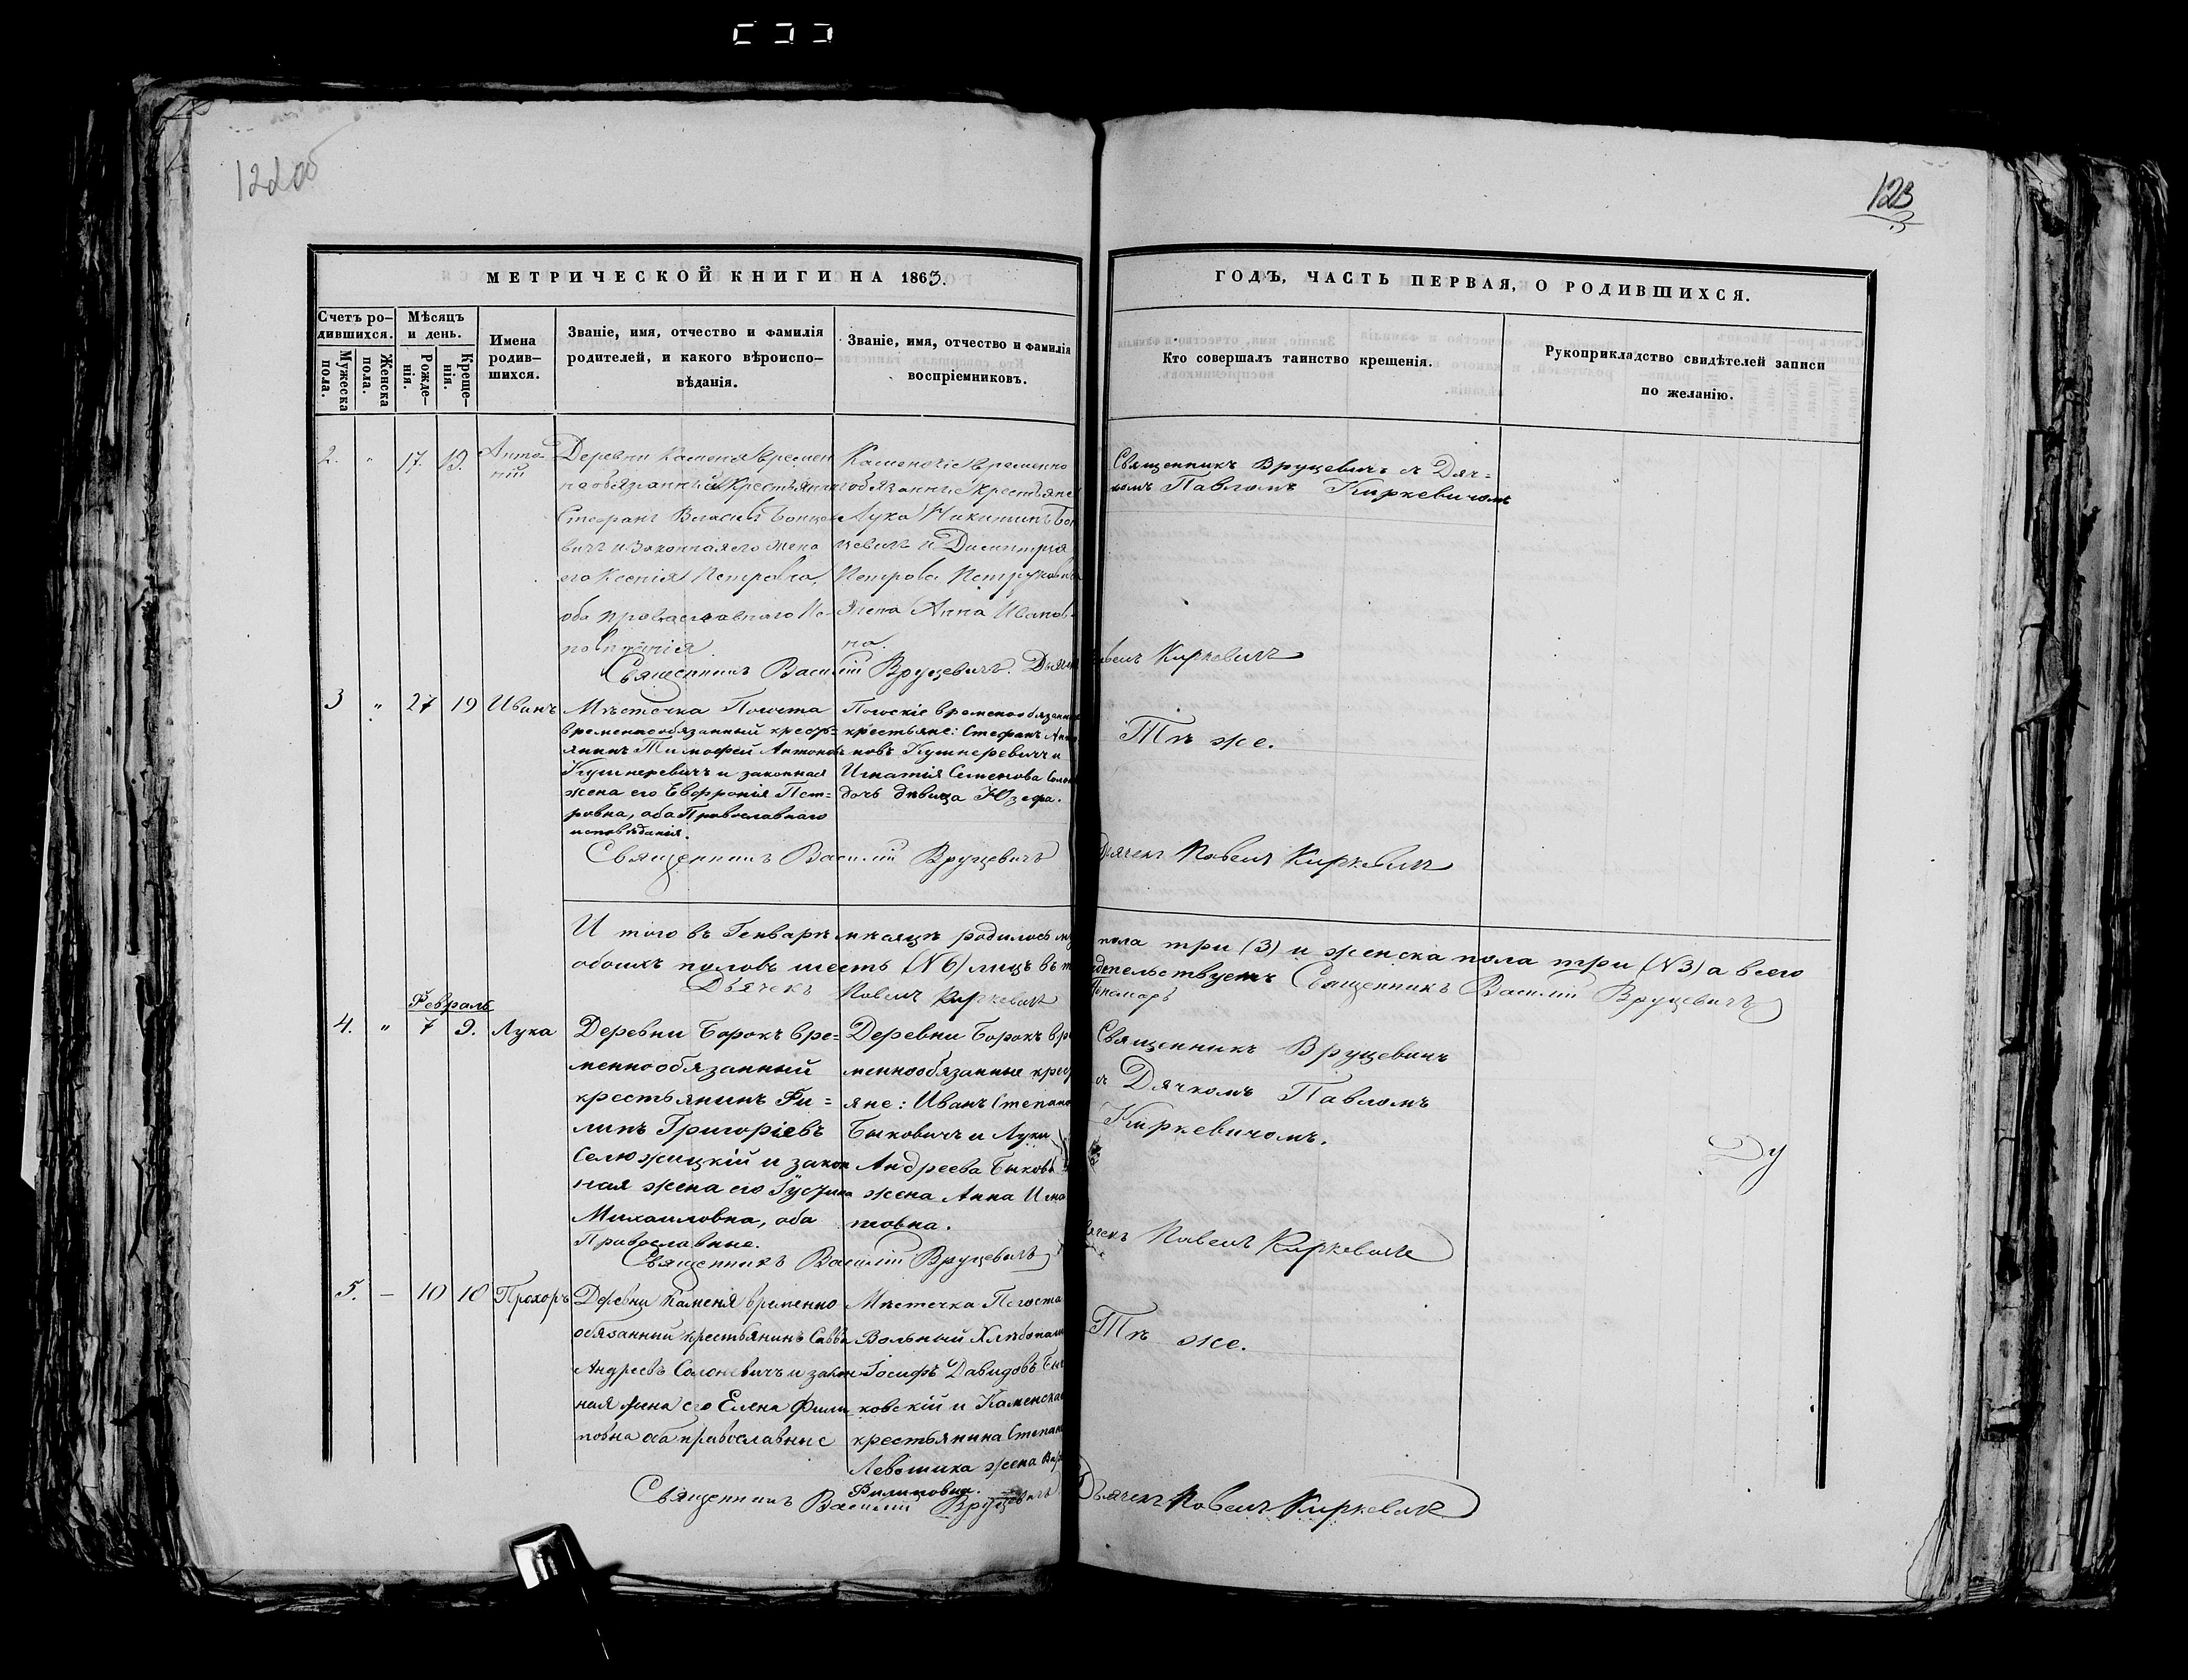 122об
123
МЕТРИЧЕСКОЙ КНИГИ НА 1863.
ГОДЪ, ЧАСТЬ ПЕРВАЯ, О РОДИВШИХСЯ.
Счетъ ро-
дившихся.
Мужеска пола.
Женска пола.
Мѣсяцъ
и день.
Рожде-
нія.
Креще-
нія.
Имена
родив-
шихся.
Званіе, имя, отчество и фамилія
родителей, и какого вѣроиспо-
вѣданія.
Званіе, имя, отчество и фамилія
воспріемниковъ.
Кто совершалъ таинство крещенія.
Рукоприкладство свидѣтелей записи
по желанію.
2. " 17. 19. Анто-
ній
Деревни Каменя времен
нообязанный Крестьянинъ
Стефанъ Власіевъ
вичъ и Законная его жена
его Ксенія Петровна,
оба православнаго Ис-
повѣданія.
Каменскіе временно
обязанные крестьяне
Лука Никитинъ Бон
цевичъ и Димитрія
Петрова
жена Анна Иванов-
на.
Священникъ Вруцевичъ съ Дяч=
комъ Павломъ Киркевичомъ
Священникъ Василій Вруцевичъ. Дьячекъ Павелъ Киркевичъ
3 " 27 19 Иванъ
Мѣстечка Погоста
временнообязанный крестъ=
янинъ Тимофей Антоновъ
Кушнеревичъ и законная
жена его Евфронія Пет=
ровна, оба Православнаго
исповѣданія.
Погоскіе временообязанные
крестьяне: Стефанъ Анто
новъ Кушнеревичъ и
Игнатія Семенова
дочь дѣвица Юзефа.
Тѣ же.
Священникъ Василій Вруцевичъ Дьячекъ Павелъ Киркевичъ
И того въ Генварѣ мѣсяцѣ родилось муж пола три (3) и женска пола три (№3) а всего
обоихъ половъ шесть (№6) лицъ въ томъ свидѣтельствуетъ Священникъ Василій Вруцевичъ
Дьячекъ Павелъ Киркевичъ Пономарь
Февраль
4. " 7 9. Лука
Деревни Борокъ вре=
меннообязанный
крестьянинъ Фи=
липъ Григоріевъ
Селюжицкій и закон
ная жена его Іустина
Михаиловна, оба
Православные.
Деревни Борокъ вре
меннообязанные крест
яне: Иванъ Степано
Быковичъ и Луки
Андреева Быкови
жена Анна Игна
товна.
Священникъ Вруцевичъ
съ Дячкомъ Павломъ
Киркевичомъ.
Ду
Священникъ Василій Вруцевичъ Дьячекъ Павелъ Киркевичъ
5. — 10 10 Прохоръ
Деревни Каменя временно
обязанный крестьянинъ Савва
Андреевъ Солоневичъ и закон
ная жена его Елена Фили
повна оба православные
Мѣстечка Погоста
Вольный Хлѣбопаш
Іосифъ Давидовъ Бы
ковскій и Каменскаго
крестьянина Степана
Левошика жена Вар
Филиповна.
Тѣ же.
Священникъ Василій Вруцевичъ Дьячекъ Павелъ Киркевичъ